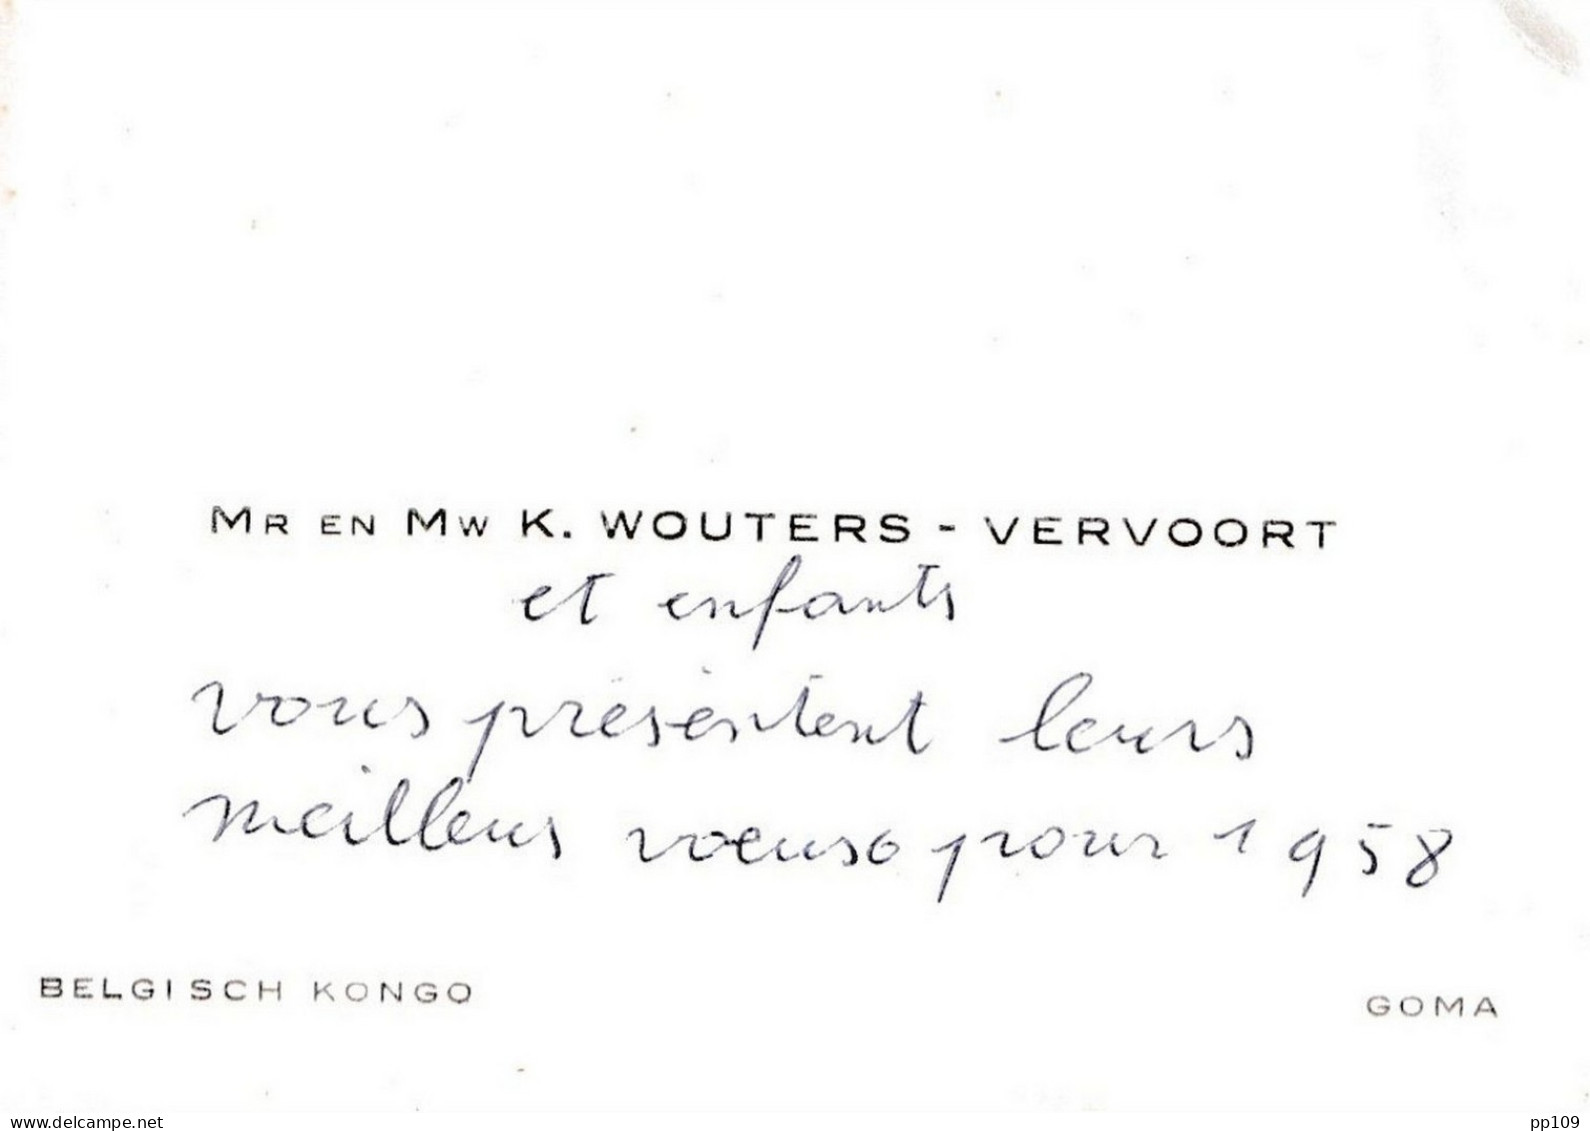 MR EN MW K. WOUTERS - VERVOORT
et enfants
vous présentent leurs
meilleurs voeux pour 1958
BELGISCH KONGO
GOMA
www.delcampe.net
pp109